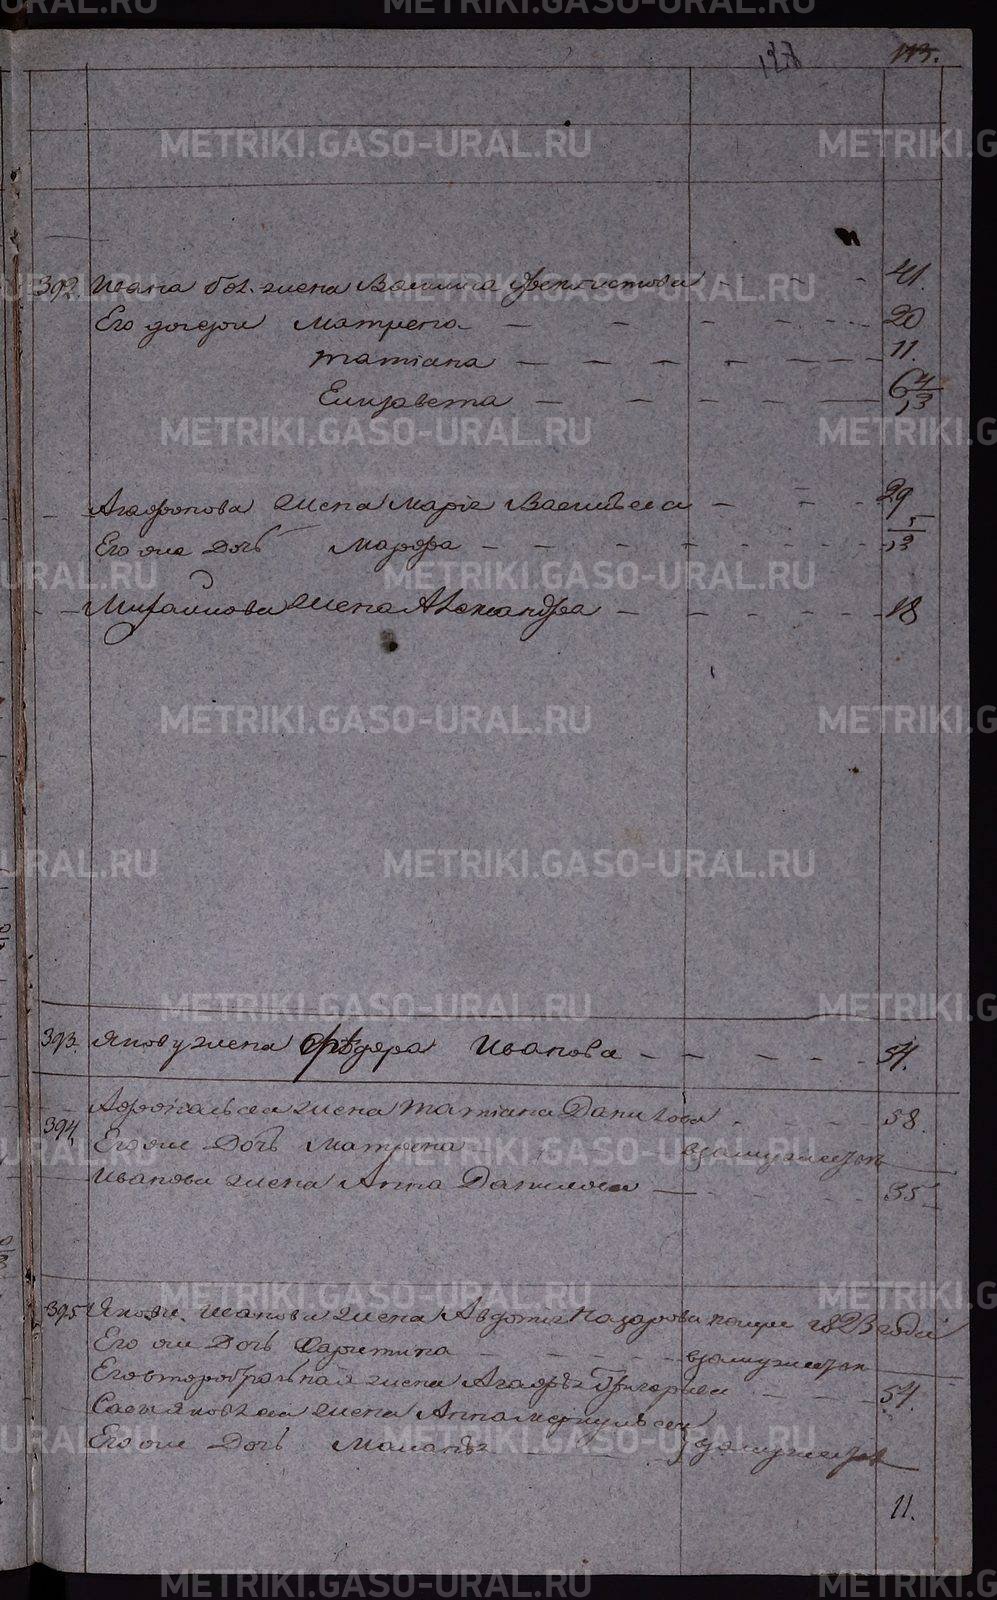 113.
392. Ивана 2й. жена Василиса Феклистова 41.
Его дочери Матрена 20
Татiана 11.
Елизавета 6 4/13
Агафонова жена Марiя Васильева 29
Его же Дочь Марфа 5/13
Михайлова жена Александра 18
393. Якову жена Федора Иванова 54.
394. жена Татiана Данилова 58.
Его же Дочь Матрена взамужестве
Иванова жена Анна Данилова 35
395 Иванова жена Авдотiя Назарова 1823 года
Его же Дочь Харитина взамужестве
Его второбрачная жена Григорьева 54.
жена Анна Меркульева
Его же Дочь Маланья взамужестве
11.
METRIKI.GASO-URAL.RU